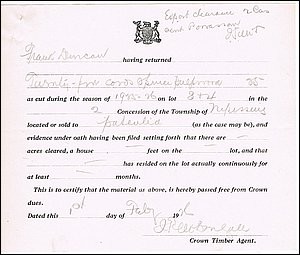 Export clearance
and Possession
Frank Duncan
having returned
Twenty-five cords
as cut during the season of 1935-36 on lot 3+4 in the
2 Concession of the Township of
located or sold to patented (as the case may be), and
evidence under oath having been filed setting forth that there are
acres cleared, a house feet on the lot, and that
has resided on the lot actually continuously for
at least months.
This is to certify that the material as above, is hereby passed free from Crown
dues.
Dated this 1st day of Feby 19
Crown Timber Agent.